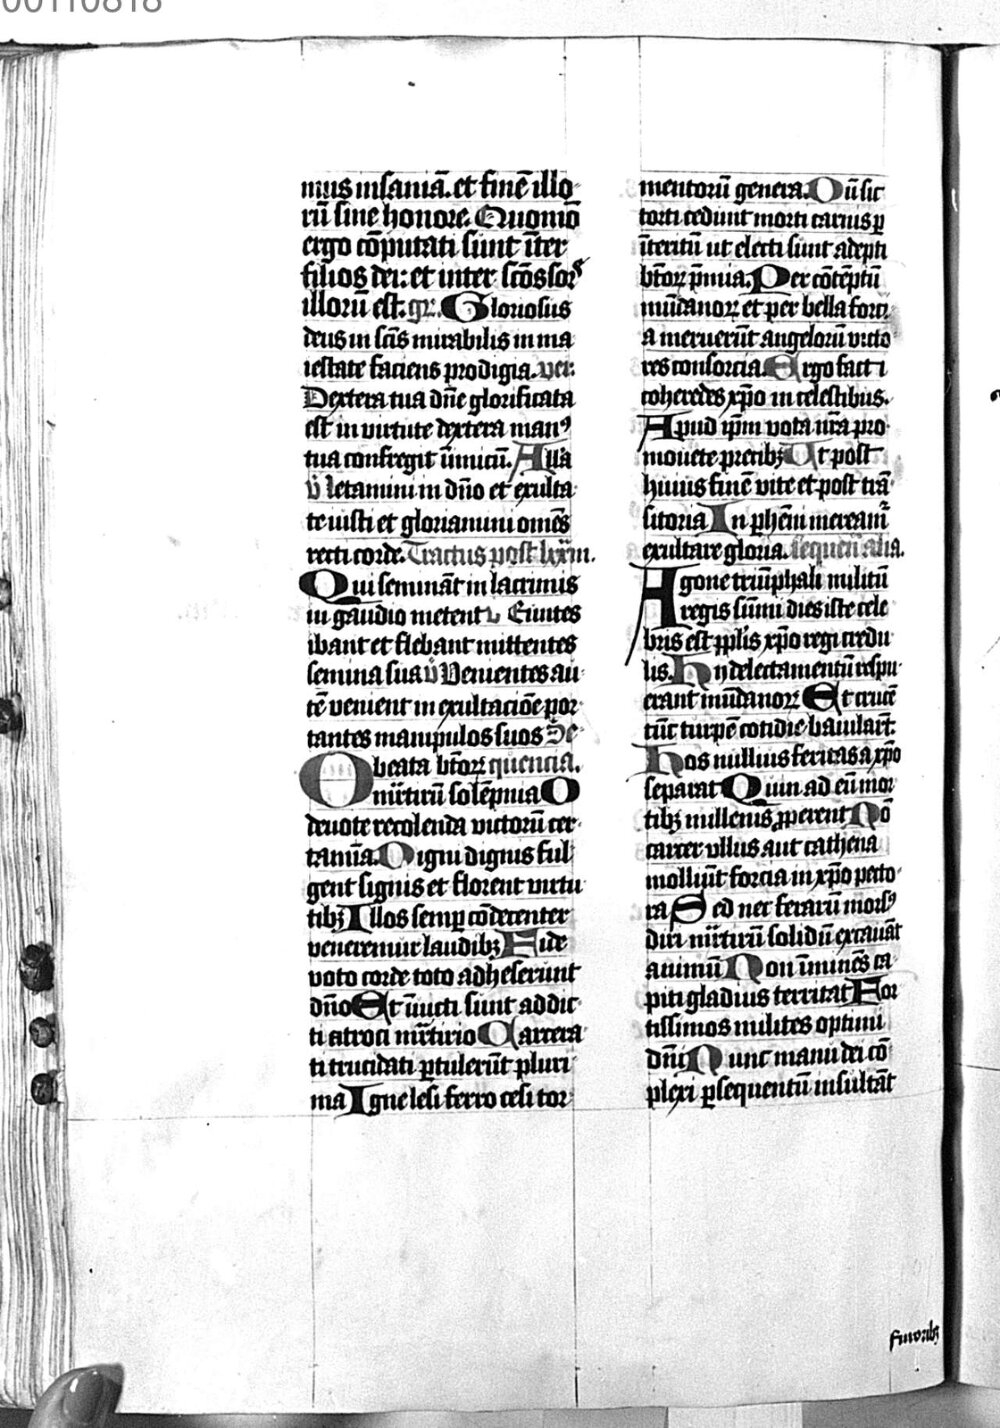 00110818
mus insaniā. et finē illo
rū sine honore. Quomō
ergo cōputati sunt īter
filios dei: et inter scōs sors
illorū est. gr̄. Gloriosus
deus in scīs mirabilis in ma
iestate faciens prodigia. ver.
Dextera tua dn̄e glorificata
est in virtute dextera manꝰ
tua confregit īimicū. Allā
v̄ letamini in dn̄o et exulta
te iusti et gloriamini om̄s
recti corde. Tractus post lxxm̄.
Qui semināt in lacrimis
in gaudio metent v Euntes
ibant et flebant mittentes
semina sua v̄ Venientes au
tē venient in exultaciōe por
tantes manipulos suos Se
O beata btōꝝ quencia.
mr̄tirū solēpnia O
deuote recolenda victorū cer
tamīa. Digni dignis ful
gent signis et florent virtu
tibꝫ Illos semꝑ cōdecenter
veneremur laudibꝫ Fide
voto corde toto adheserunt
dn̄o Et iūicti sunt addic
ti atroci mr̄tirio Carcera
ti trucidati ꝑtulerūt pluri
ma Igne lesi ferro cesi tor
mentorū genera. Dū sic
torti cedunt morti carnis ꝑ
īteritū ut electi sunt adepti
btōꝝ p̄mia. Per cōtēptū
mūdanoꝝ et per bella forti
a meruerūt angelorū victo
res consorcia. Ergo facti
coheredes xp̄o in celestibus.
Apud ip̄m vota nr̄a pro
mouete precibꝫ Ut post
huius finē vite et post trā
sitoria In ꝑhēni mereamr̄
exultare gloria. sequen̄ alia.
Agone triūphali militū
regis sūmi dies iste cele
bris est pp̄lis xp̄o regi credu
lis. Hii delectamentū respu
erant mūdanoꝝ Et crucē
tūc turpē cotidie baiulāt:
Hos nullius feritas a xp̄o
separat Quin ad eū mor
tibꝫ millenis ꝓperent Nō
carcer vllus aut cathena
molliūt forcia in xp̄o pecto
ra Sed nec ferarū morsꝰ
diri mr̄tirū solidū excauāt
animū Non īminēs ca
piti gladius territat For
tissimos milites optimi
dn̄i Nunc manu dei cō
plexi ꝑsequentū insultāt
furoribꝫ